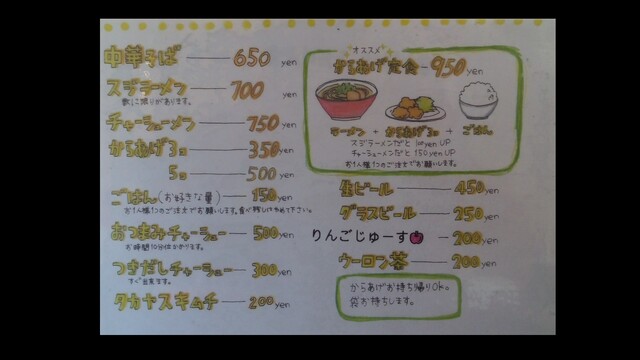 中華そば 650 yen
スジラーメン 700 yen
数に限りがあります。
チャーシューメン 750 yen
からあげ 3コ 350 yen
5コ 500 yen
ごはん(お好きな量) 150 yen
お1人様1つのご注文でお願いします。食べ残しはやめて下さい。
おつまみチャーシュー 500 yen
お時間10分位かかります。
つきだしチャーシュー 300 yen
すぐ出来ます。
タカヤスキムチ 200 yen
オススメ
からあげ定食 950 yen
ラーメン + からあげ3コ + ごはん
スジラーメンだと 100 yen UP
チャーシューメンだと 150 yen UP
お1人様1つのご注文でお願いします。
生ビール 450 yen
グラスビール 250 yen
りんごじゅーす 200 yen
ウーロン茶 200 yen
からあげお持ち帰りOK。
袋お持ちします。